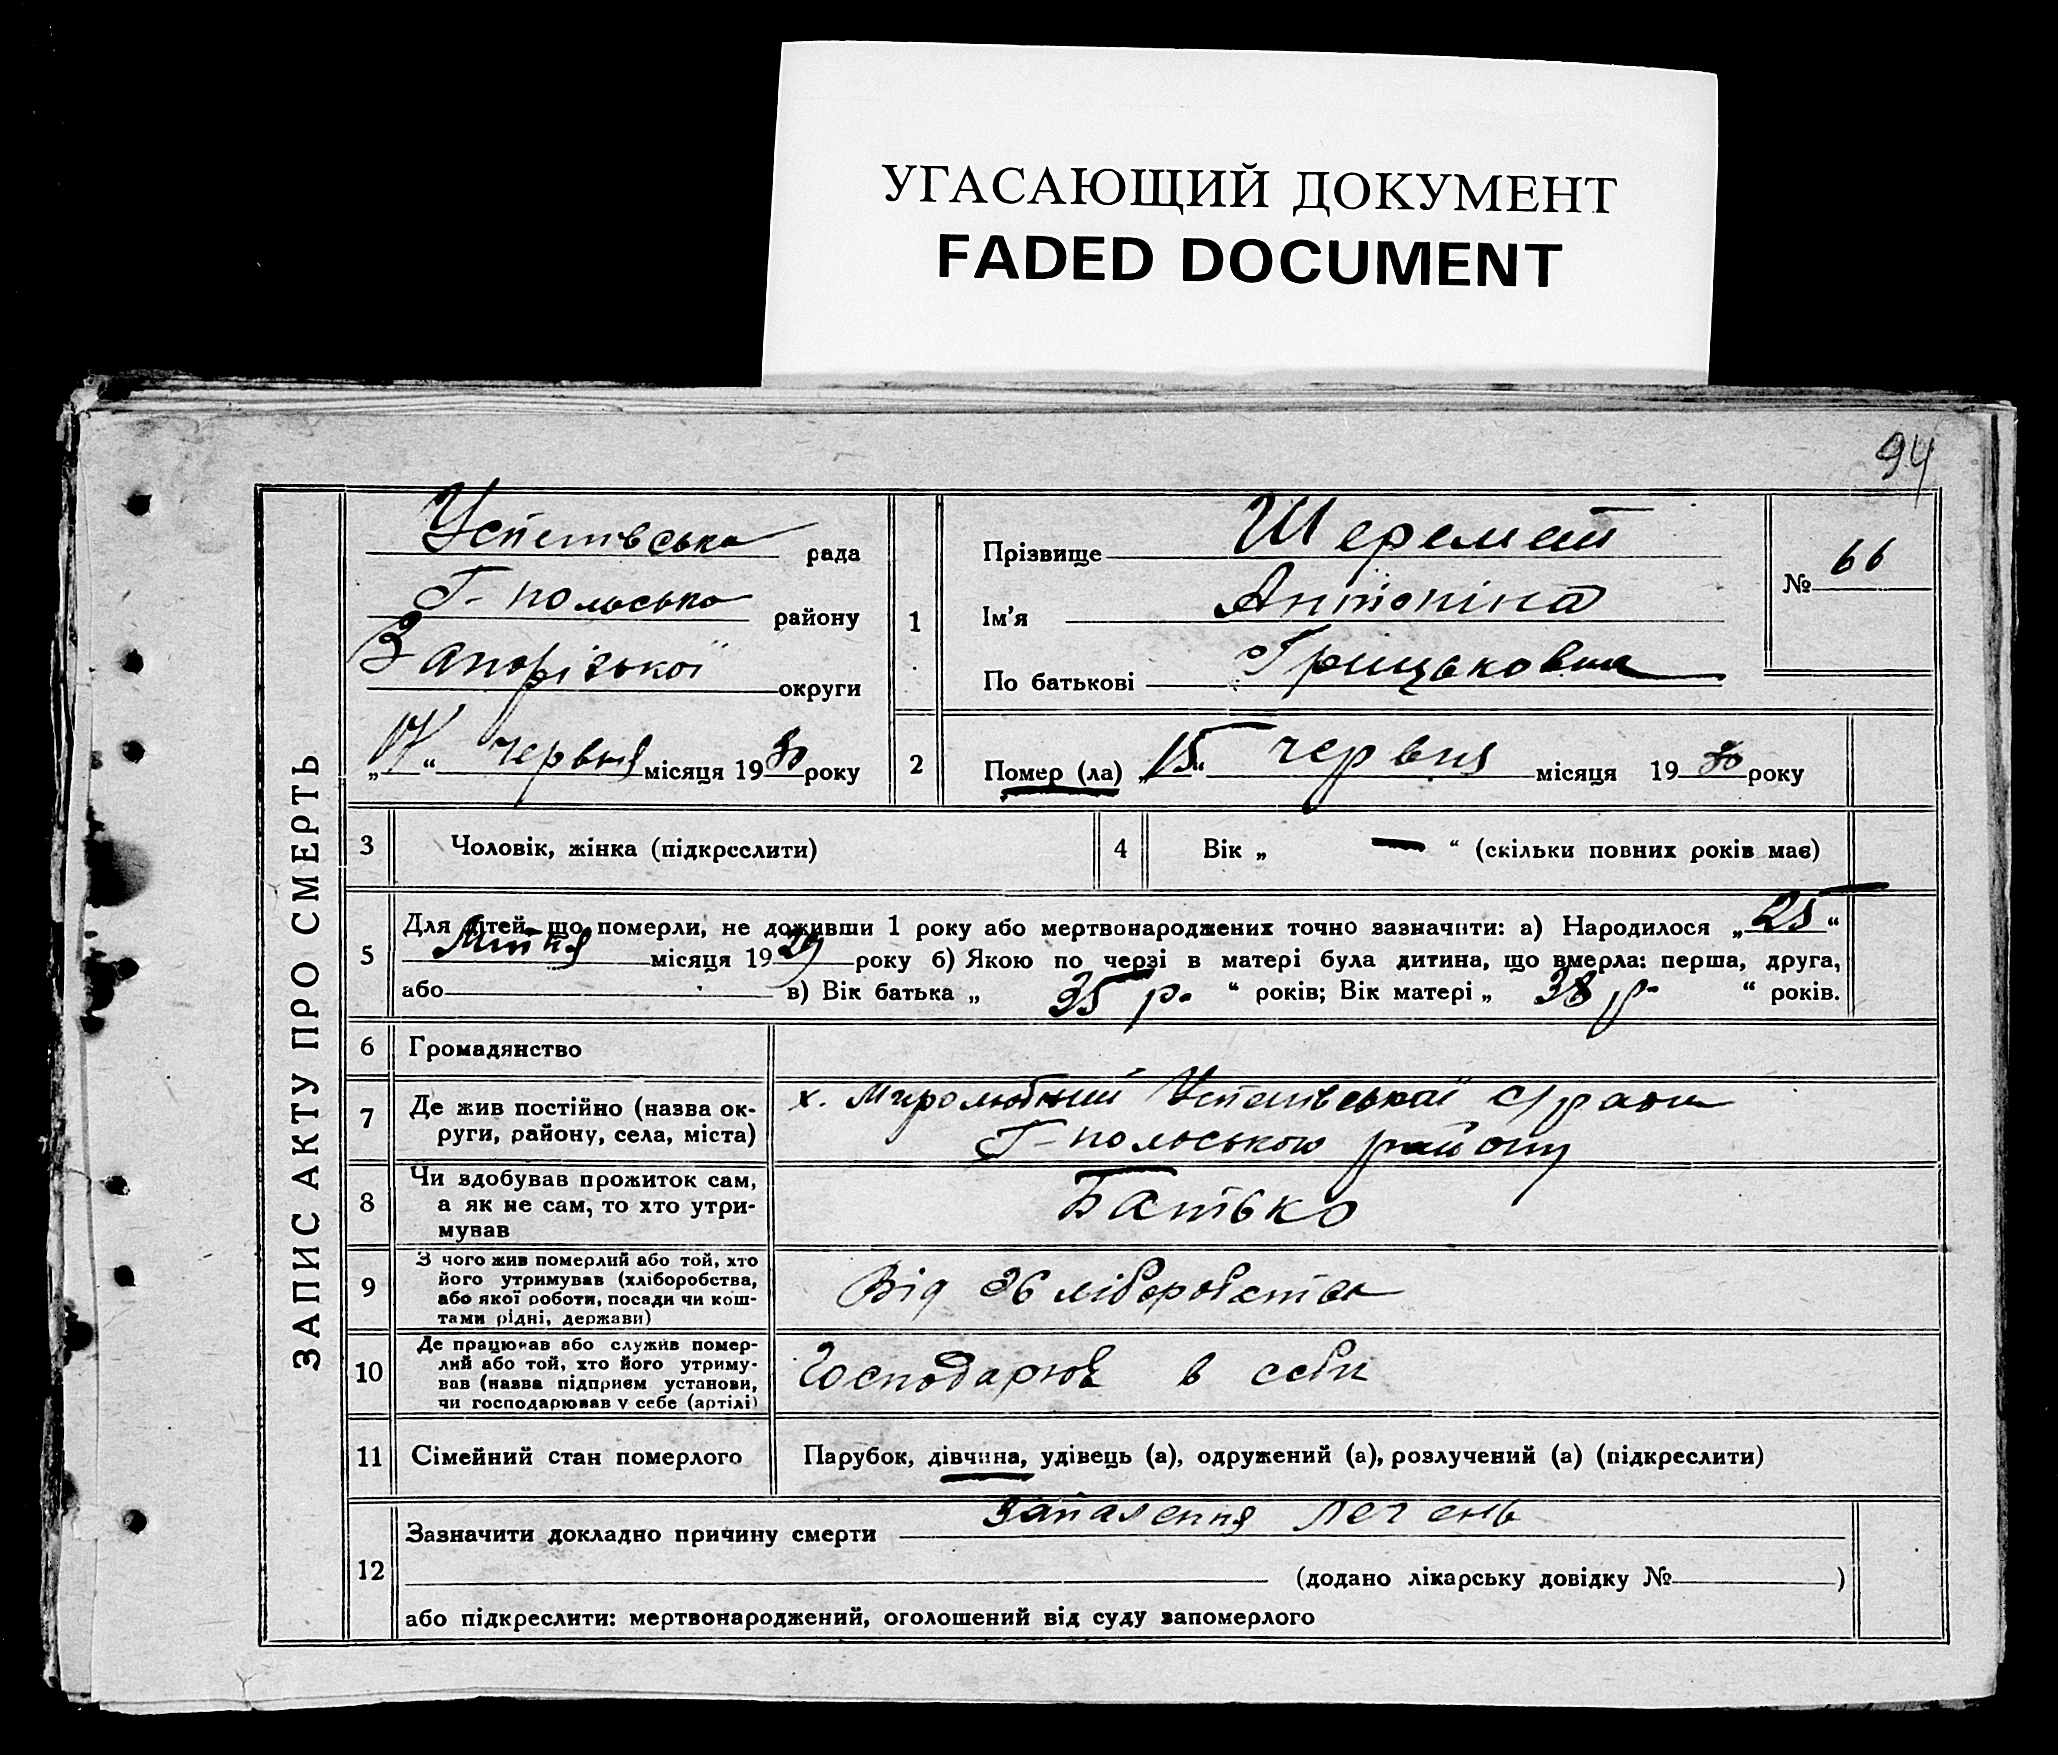 УГАСАЮЩИЙ ДОКУМЕНТ
FADED DOCUMENT
94
ЗАПИС АКТУ ПРО СМЕРТЬ
Успенівська рада
Г-польська району
Запорізької округи
„17“ червня місяця 1930 року
1
Прізвище Шеремет
Ім'я Антоніна
По батькові Грицьковна
№ 66
2
Помер (ла) „15“ червня місяця 1930 року
3 Чоловік, жінка (підкреслити)
4 Вік „ — “ (скільки повних років має)
5
Для дітей, що померли, не доживши 1 року або мертвонароджених точно зазначити: а) Народилося „25“
місяця 1929 року б) Якою по черзі в матері була дитина, що вмерла: перша, друга,
або в) Вік батька „ 35 р. “ років; Вік матері „ 38 р. “ років.
6 Громадянство
7
Де жив постійно (назва ок-
руги, району, села, міста)
х. Миролюбний Успенівської с/ради
Г-польського району
8
Чи здобував прожиток сам,
а як не сам, то хто утри-
мував
Батько
9
З чого жив померлий або той, хто
його утримував (хліборобства,
або якої роботи, посади чи кош-
тами рідні, держави)
Від хліборобства
10
Де працював або служив помер-
лий або той, хто його утриму-
вав (назва підприєм установи,
чи господарював у себе (артілі)
Господарюв в себи
11 Сімейний стан померлого
Парубок, дівчина, удівець (а), одружений (а), розлучений (а) (підкреслити)
12
Зазначити докладно причину смерти Запалення легень
(додано лікарську довідку № )
або підкреслити: мертвонароджений, оголошений від суду запомерлого